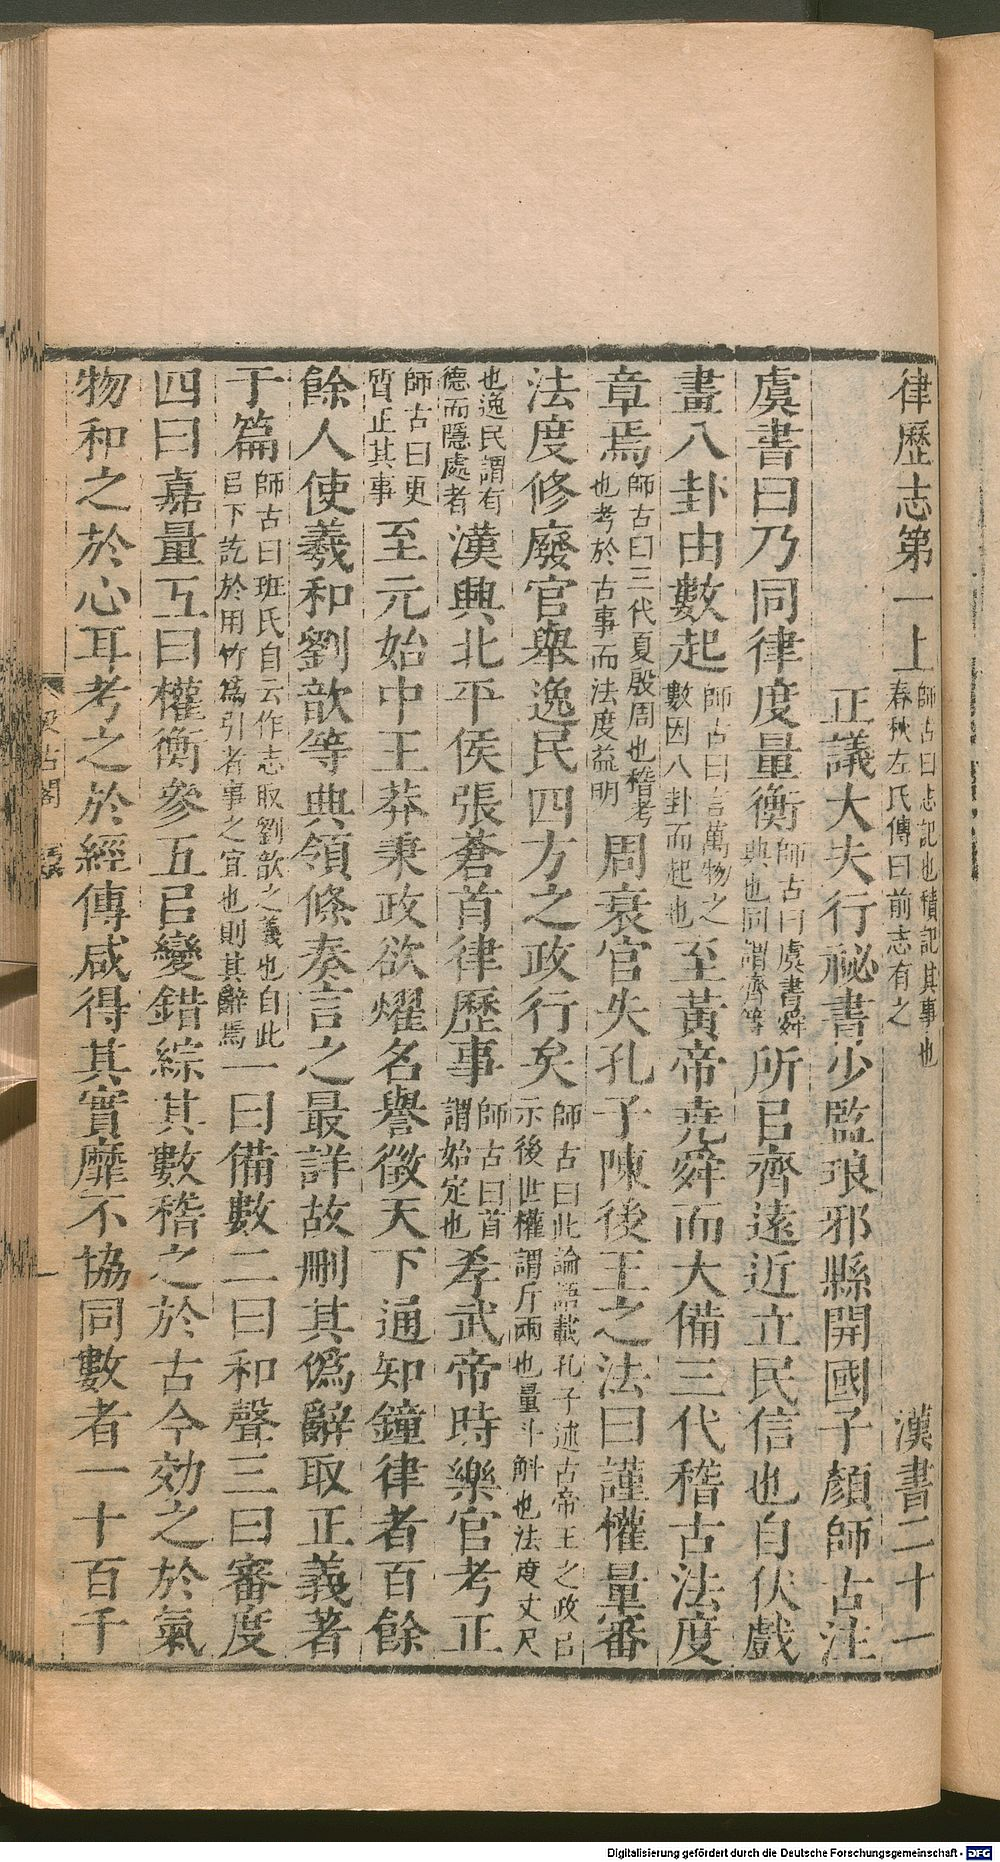 律歷志第一上師古曰志記也積記其事也春秋左氏傳曰前志有之 漢書二十一
正議大夫行祕書少監琅邪縣開國子顏師古注
虞書曰乃同律度量衡師古曰虞書舜典也同謂齊等所㠯齊遠近立民信也自伏戲
畫八卦由數起師古曰言萬物之數因八卦而起也至黃帝堯舜而大備三代稽古法度
章焉師古曰三代夏殷周也稽考也考於古事而法度益明周衰官失孔子陳後王之法曰謹權量審
法度修廢官舉逸民四方之政行矣師古曰此論語載孔子述古帝王之政㠯示後世權謂斤兩也量斗斛也法度丈尺
也逸民謂有德而隱處者漢興北平侯張蒼首律歷事師古曰首謂始定也孝武帝時樂官考正
師古曰更質正其事至元始中王莽秉政欲燿名譽徵天下通知鐘律者百餘
餘人使羲和劉歆等典領條奏言之最詳故刪其僞辭取正義著
于篇師古曰班氏自云作志取劉歆之義也自此㠯下訖於用竹爲引者事之宜也則其辭焉一曰備數二曰和聲三曰審度
四曰嘉量五曰權衡參五㠯變錯綜其數稽之於古今効之於氣
物和之於心耳考之於經傳咸得其實靡不協同數者一十百千
汲古閣
Digitalisierung gefördert durch die Deutsche Forschungsgemeinschaft - DFG